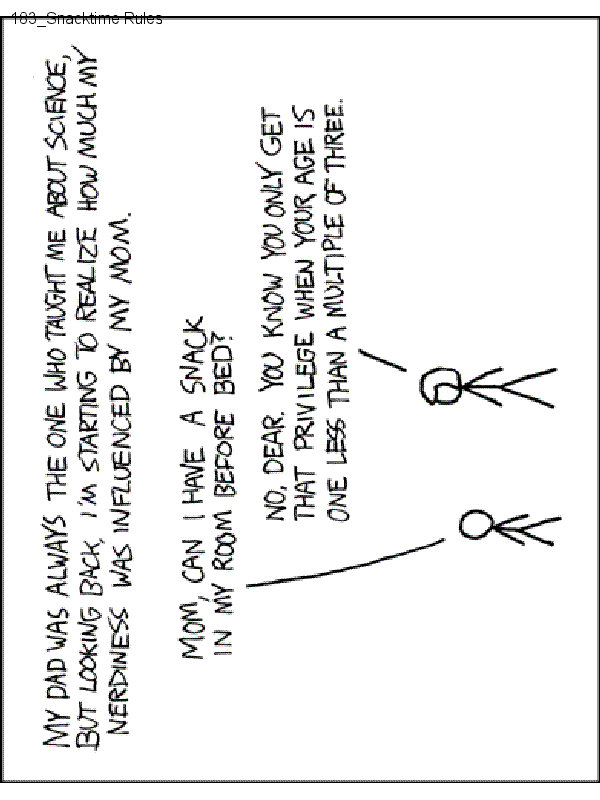 183_Snacktime Rules
MY DAD WAS ALWAYS THE ONE WHO TAUGHT ME ABOUT SCIENCE,
BUT LOOKING BACK, I'M STARTING TO REALIZE HOW MUCH MY
NERDINESS WAS INFLUENCED BY MY MOM.
MOM, CAN I HAVE A SNACK
IN MY ROOM BEFORE BED?
NO, DEAR. YOU KNOW YOU ONLY GET
THAT PRIVILEGE WHEN YOUR AGE IS
ONE LESS THAN A MULTIPLE OF THREE.